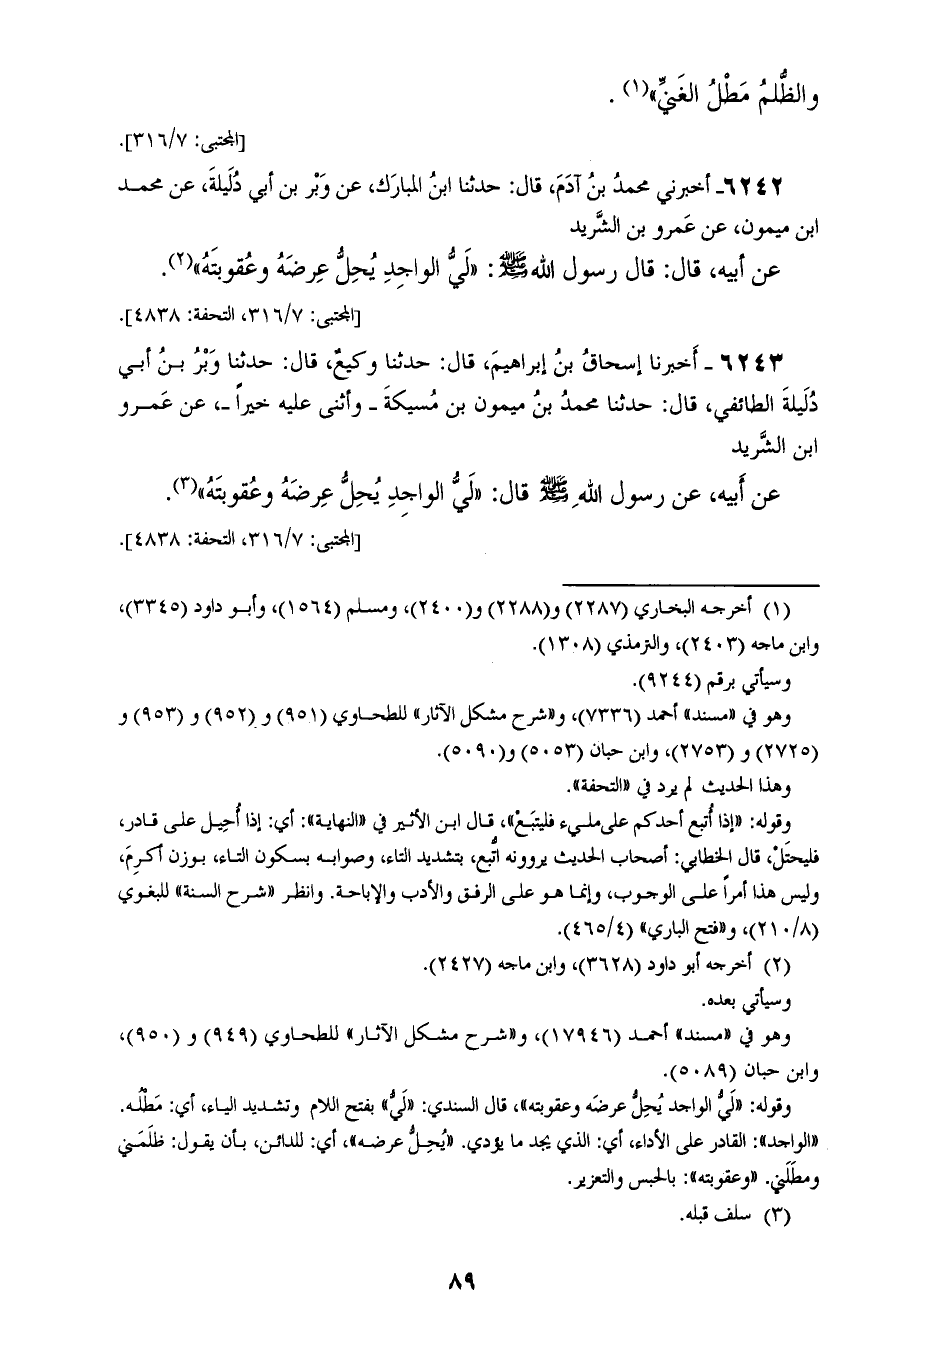 والظُّلمُ مَطْلُ الغَنيِّ»(١) .
[المجتبى: ٣١٦/٧].
٦٢٤٢ـ أخبرني محمدُ بنُ آدَمَ، قال: حدثنا ابنُ المبارَك، عن وَبْر بن أبي دُلَيلةَ، عن محمد
ابن ميمون، عن عَمرو بن الشَّريد
عن أبيه، قال: قال رسول الله ﷺ: «لَيُّ الواجِدِ يُحِلُّ عِرضَهُ وعُقوبتَهُ»(٢).
[المجتبى: ٣١٦/٧، التحفة: ٤٨٣٨].
٦٢٤٣ ـ أَخبرنا إسحاقُ بنُ إبراهيمَ، قال: حدثنا وكيعٌ، قال: حدثنا وَبْرُ بنُ أبي
دُلَيلةَ الطائفي، قال: حدثنا محمدُ بنُ ميمون بن مُسيكةَ ـ وأثنى عليه خيراً ـ، عن عَمرو
ابن الشَّريد
عن أَبيه، عن رسول اللهِ ﷺ قال: «لَيُّ الواجِدِ يُحِلُّ عِرضَهُ وعُقوبتَهُ»(٣).
[المجتبى: ٣١٦/٧، التحفة: ٤٨٣٨].
(١) أخرجه البخاري (٢٢٨٧) و(٢٢٨٨) و(٢٤٠٠)، ومسلم (١٥٦٤)، وأبو داود (٣٣٤٥)،
وابن ماجه (٢٤٠٣)، والترمذي (١٣٠٨).
وسيأتي برقم (٩٢٤٤).
وهو في «مسند» أحمد (٧٣٣٦)، و«شرح مشكل الآثار» للطحاوي (٩٥١) و (٩٥٢) و (٩٥٣) و
(٢٧٢٥) و (٢٧٥٣)، وابن حبان (٥٠٥٣) و(٥٠٩٠).
وهذا الحديث لم يرد في «التحفة».
وقوله: «إذا أُتبع أحدكم على مليء فليتبَعْ»، قال ابن الأثير في «النهاية»: أي: إذا أُحِيل على قادر،
فليحتَلْ، قال الخطابي: أصحاب الحديث يروونه اتُّبع، بتشديد التاء، وصوابه بسكون التاء، بوزن أكرِمَ،
وليس هذا أمراً على الوجوب، وإنما هو على الرفق والأدب والإباحة. وانظر «شرح السنة» للبغوي
(٢١٠/٨)، و«فتح الباري» (٤٦٥/٤).
(٢) أخرجه أبو داود (٣٦٢٨)، وابن ماجه (٢٤٢٧).
وسيأتي بعده.
وهو في «مسند» أحمد (١٧٩٤٦)، و«شرح مشكل الآثار» للطحاوي (٩٤٩) و (٩٥٠)،
وابن حبان (٥٠٨٩).
وقوله: «لَيُّ الواجد يُحِلُّ عرضَه وعقوبته»، قال السندي: «لَيُّ» بفتح اللام وتشديد الياء، أي: مَطْلُه.
«الواجد»: القادر على الأداء، أي: الذي يجد ما يؤدي. «يُحِلُّ عرضه»، أي: للدائن، بأن يقول: ظلَمَني
ومطَلَني. «وعقوبته»: بالحبس والتعزير.
(٣) سلف قبله.
٨٩